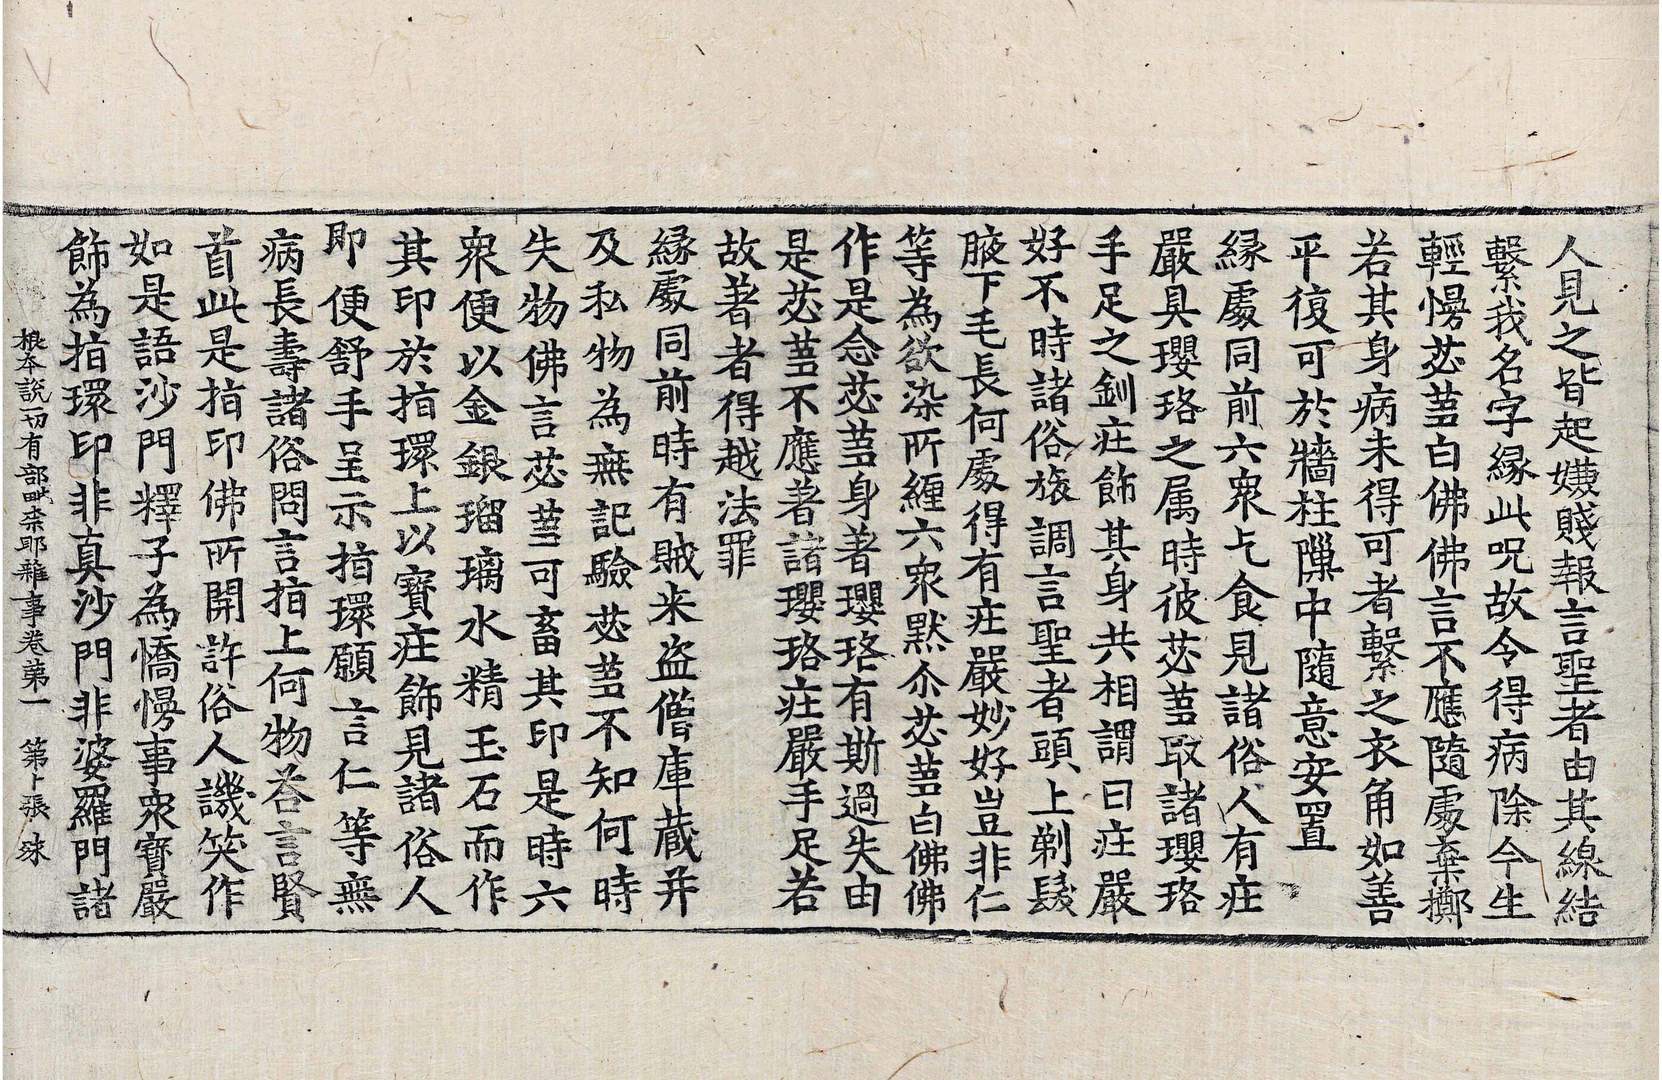 人見之皆起嫌賤報言聖者由其線結
繫我名字緣此呪故令得病除今生
輕慢苾芻白佛佛言不應隨處棄擲
若其身病未得可者繫之衣角如善
平復可於牆柱隟中隨意安置
緣處同前六衆乞食見諸俗人有庄
嚴具瓔珞之属時彼苾芻取諸瓔珞
手足之釧庄飾其身共相謂曰庄嚴
好不時諸俗旅調言聖者頭上剃髮
腋下毛長何處得有庄嚴妙好豈非仁
等為欲染所纏六衆默尒苾芻白佛佛
作是念苾芻身著瓔珞有斯過失由
是苾芻不應著諸瓔珞庄嚴手足若
故著者得越法罪
緣處同前時有賊来盗僧庫蔵并
及私物為無記驗苾芻不知何時
失物佛言苾芻可畜其印是時六
衆便以金銀瑠璃水精玉石而作
其印於指環上以寶庄飾見諸俗人
即便舒手呈示指環願言仁等無
病長壽諸俗問言指上何物荅言賢
首此是指印佛所開許俗人譏笑作
如是語沙門釋子為憍慢事衆寶嚴
飾為指環印非真沙門非婆羅門諸
根本說一切有部毗奈耶雜事卷第一　第卜張　殊